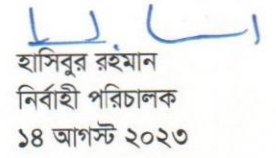 হাসিবুর রহমান
নির্বাহী পরিচালক
১৪ আগস্ট ২০২৩